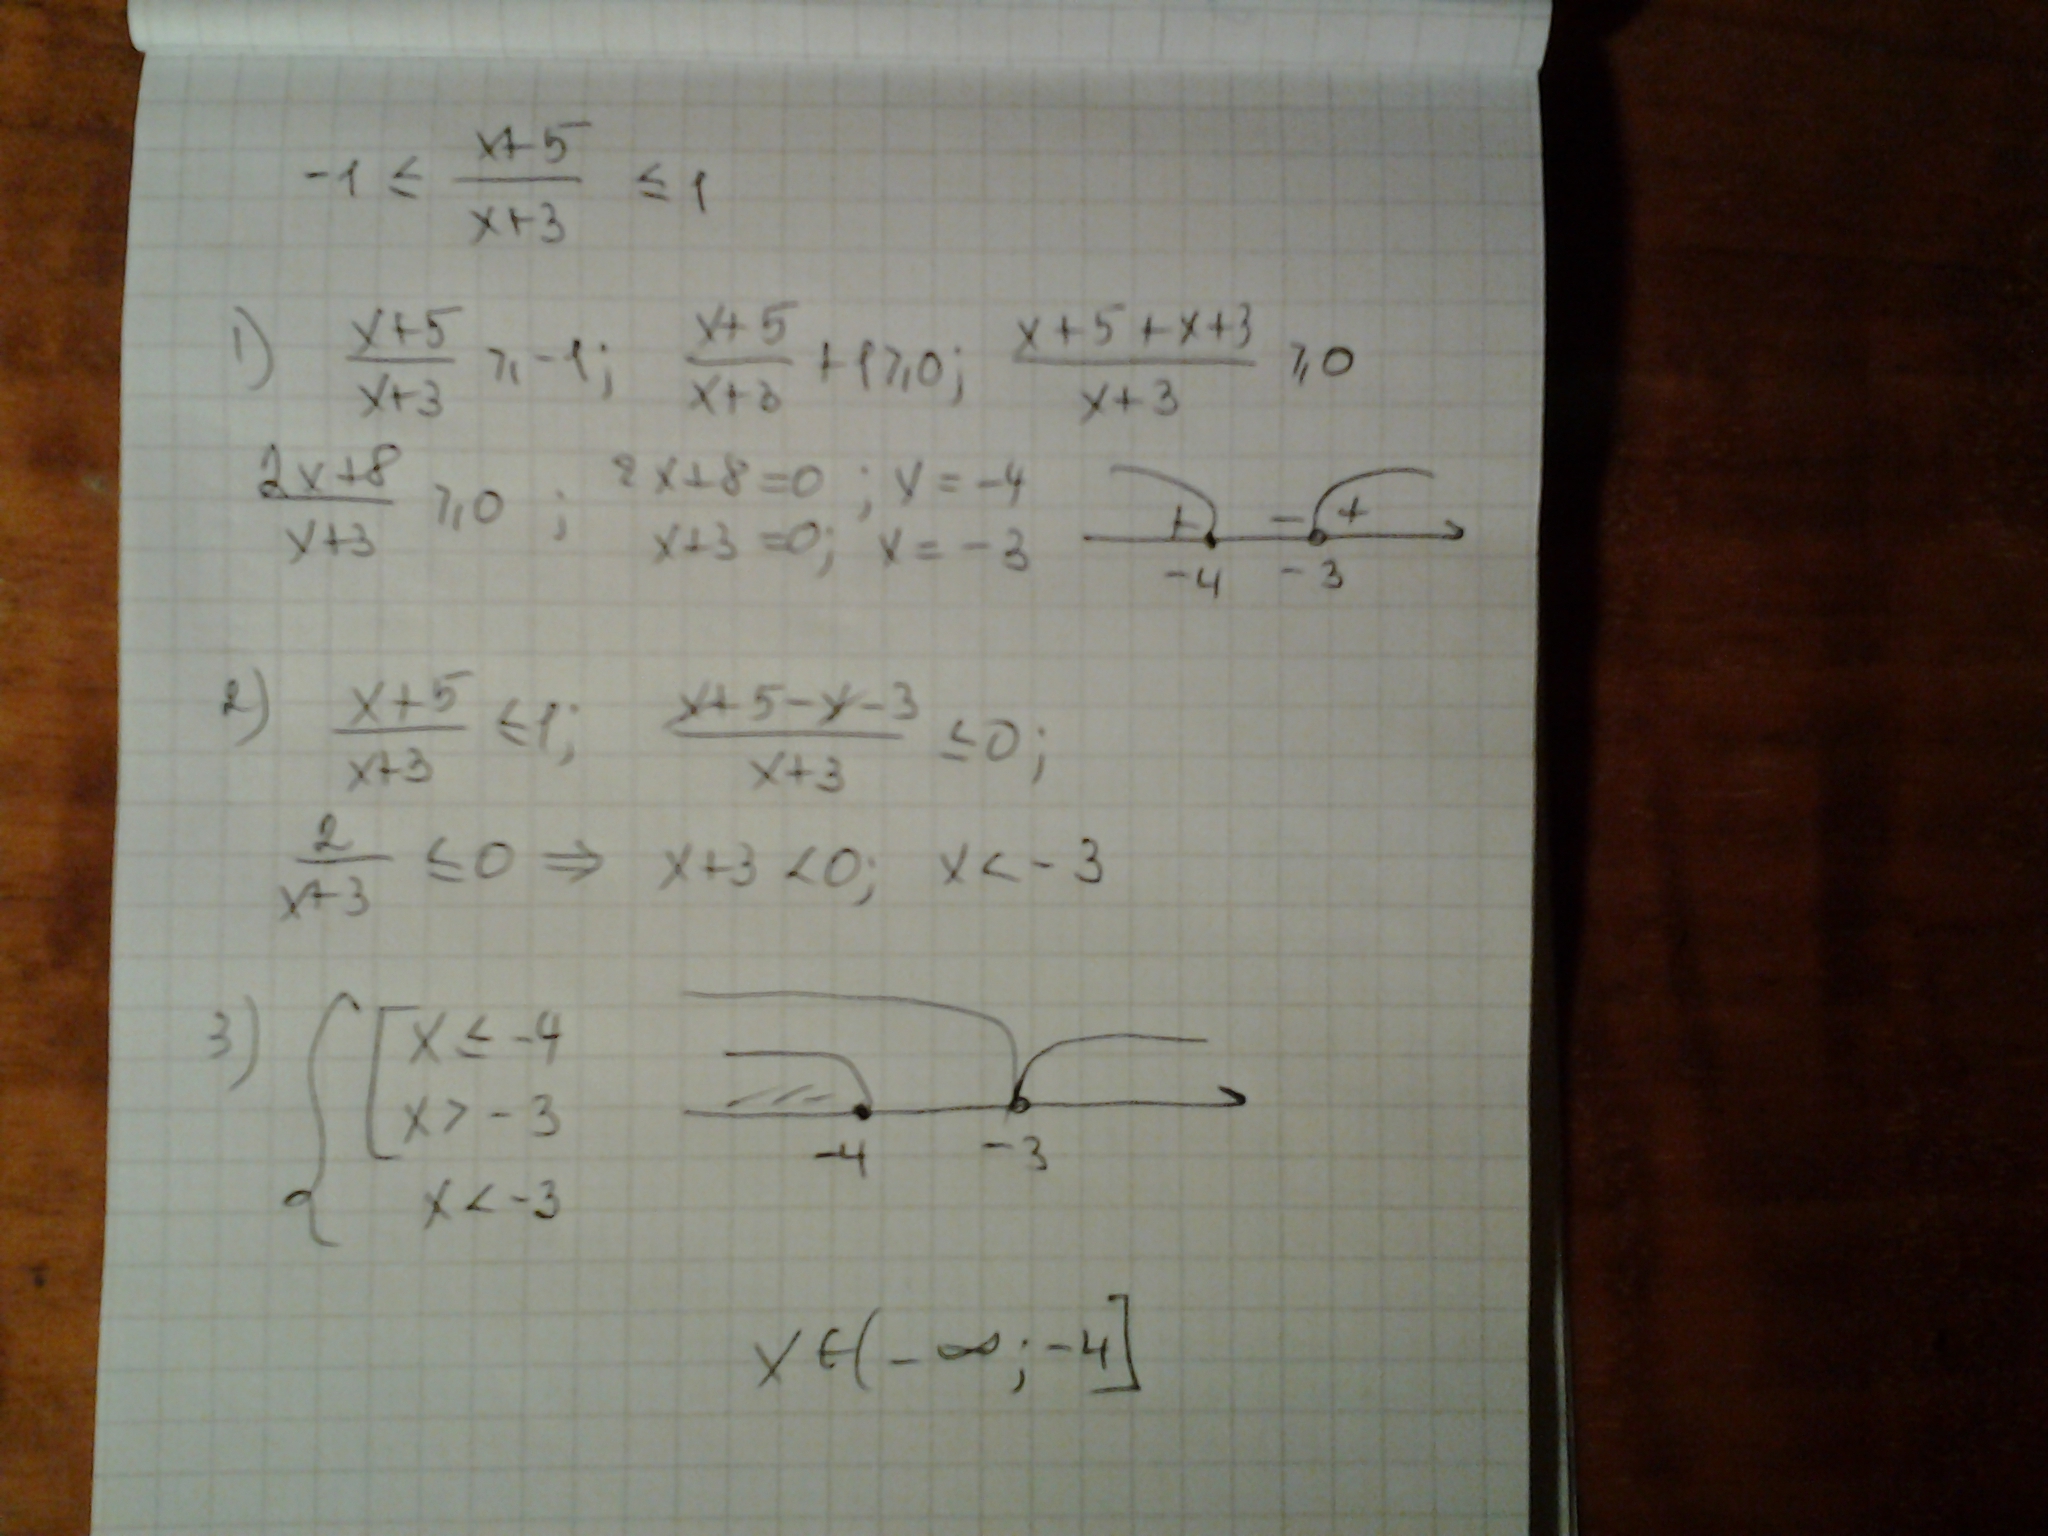 -1 ≤ (x+5)/(x+3) ≤ 1
1) (x+5)/(x+3) ⩾ -1; (x+5)/(x+3) + 1 ⩾ 0; (x+5+x+3)/(x+3) ⩾ 0
(2x+8)/(x+3) ⩾ 0 ; 2x+8=0 ; x=-4
x+3=0; x=-3
+ - +
-4 -3
2) (x+5)/(x+3) ≤ 1; (x+5-x-3)/(x+3) ≤ 0;
2/(x+3) ≤ 0 ⇒ x+3<0; x<-3
3) { [ x ≤ -4
x > -3
x < -3
-4 -3
x ∈ (-∞; -4]